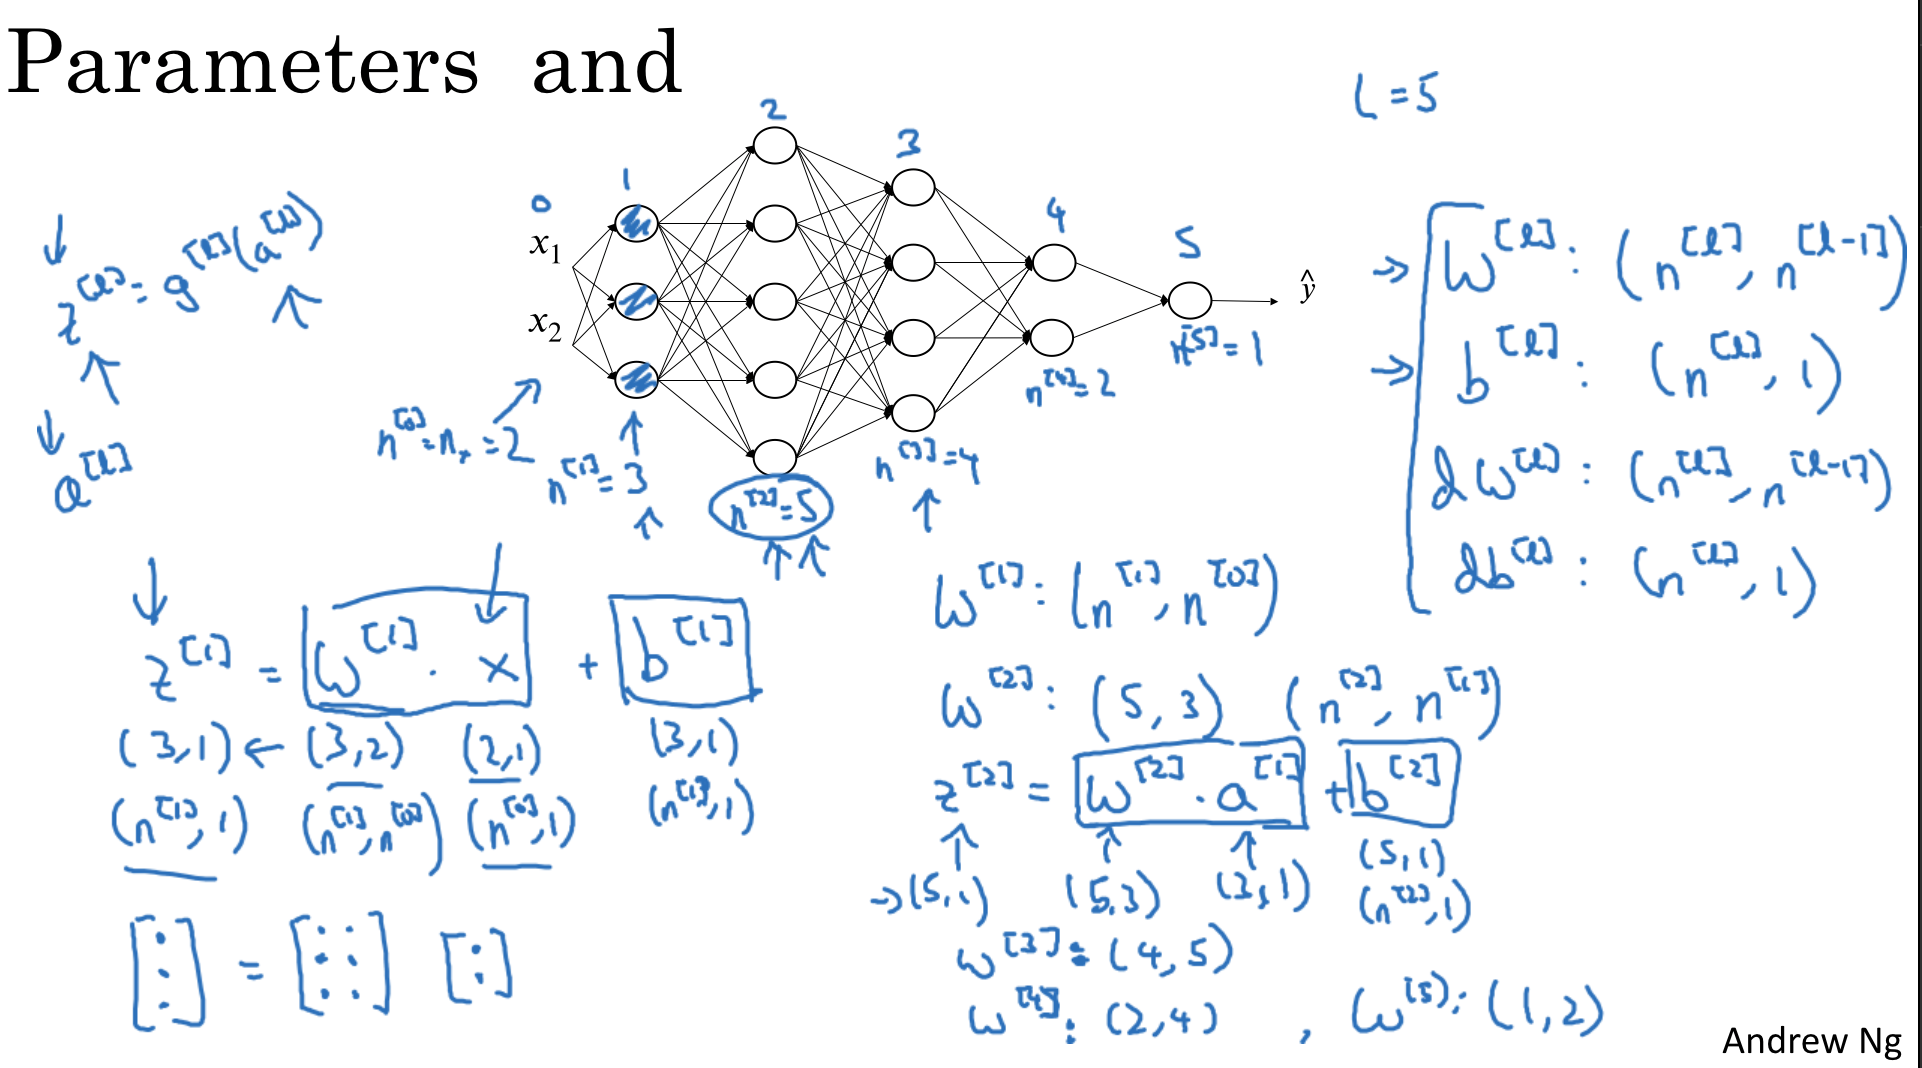 Parameters and
L = 5
0
1
2
3
4
5
x₁
x₂
ŷ
n^[0] = nₓ = 2
n^[1] = 3
n^[2] = 5
n^[3] = 4
n^[4] = 2
n^[5] = 1
z^[l] = g^[l](a^[l])
a^[l]
W^[l] : (n^[l], n^[l-1])
b^[l] : (n^[l], 1)
dW^[l] : (n^[l], n^[l-1])
db^[l] : (n^[l], 1)
z^[1] = W^[1] · x + b^[1]
(3,1) ← (3,2) (2,1) (3,1)
(n^[1], 1) (n^[1], n^[0]) (n^[0], 1) (n^[1], 1)
[⋮] = [: : :] [:]
W^[1] : (n^[1], n^[0])
W^[2] : (5, 3) (n^[2], n^[1])
z^[2] = W^[2] · a^[1] + b^[2]
→ (5,1) (5,3) (3,1) (5,1)
(n^[2], 1)
W^[3] : (4, 5)
W^[4] : (2,4) , W^[5] : (1,2)
Andrew Ng